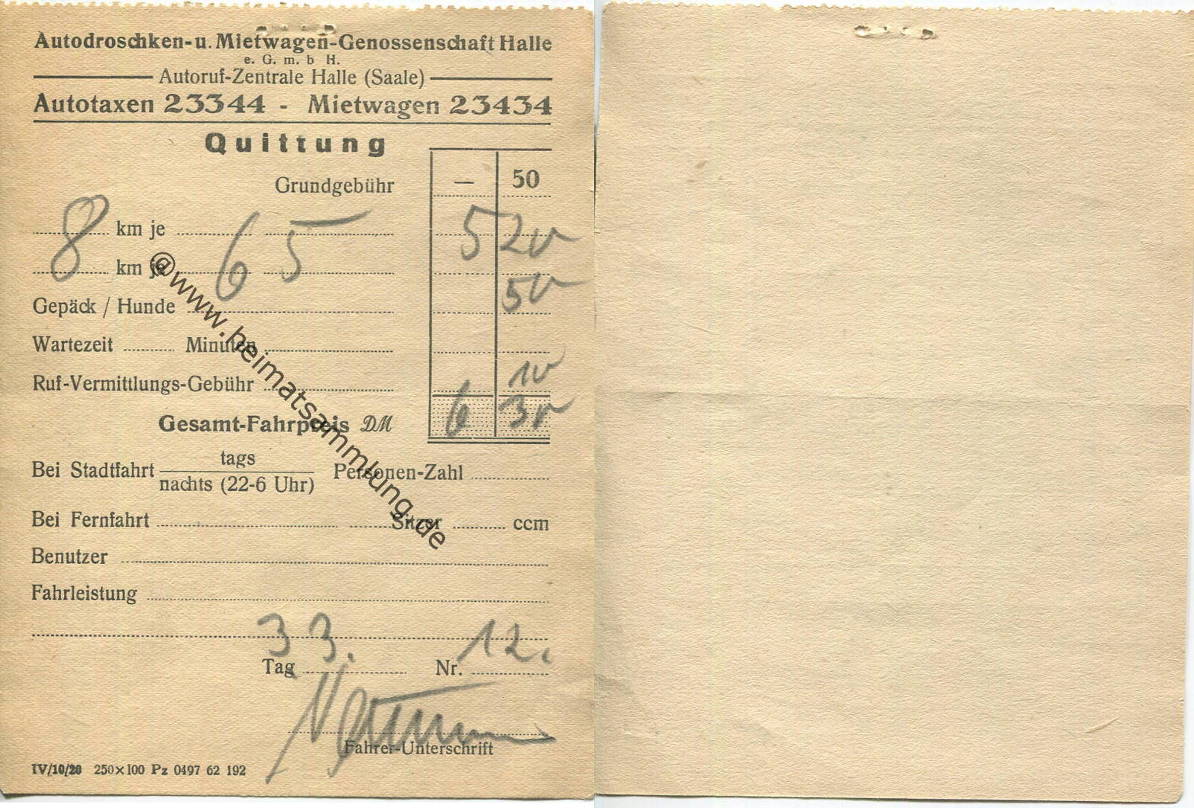 Autodroschken- u. Mietwagen-Genossenschaft Halle
e. G. m. b H.
Autoruf-Zentrale Halle (Saale)
Autotaxen 23344 - Mietwagen 23434
Quittung
Grundgebühr — 50
8 km je 65 5 20
km je 50
Gepäck / Hunde
Wartezeit Minuten
Ruf-Vermittlungs-Gebühr 10
Gesamt-Fahrpreis DM 6 30
Bei Stadtfahrt tags
nachts (22-6 Uhr) Personen-Zahl
Bei Fernfahrt Sitzer ccm
Benutzer
Fahrleistung
Tag 3 3. Nr. 12.
Fahrer-Unterschrift
IV/10/20 250×100 Pz 0497 62 192
@www.heimatsammlung.de